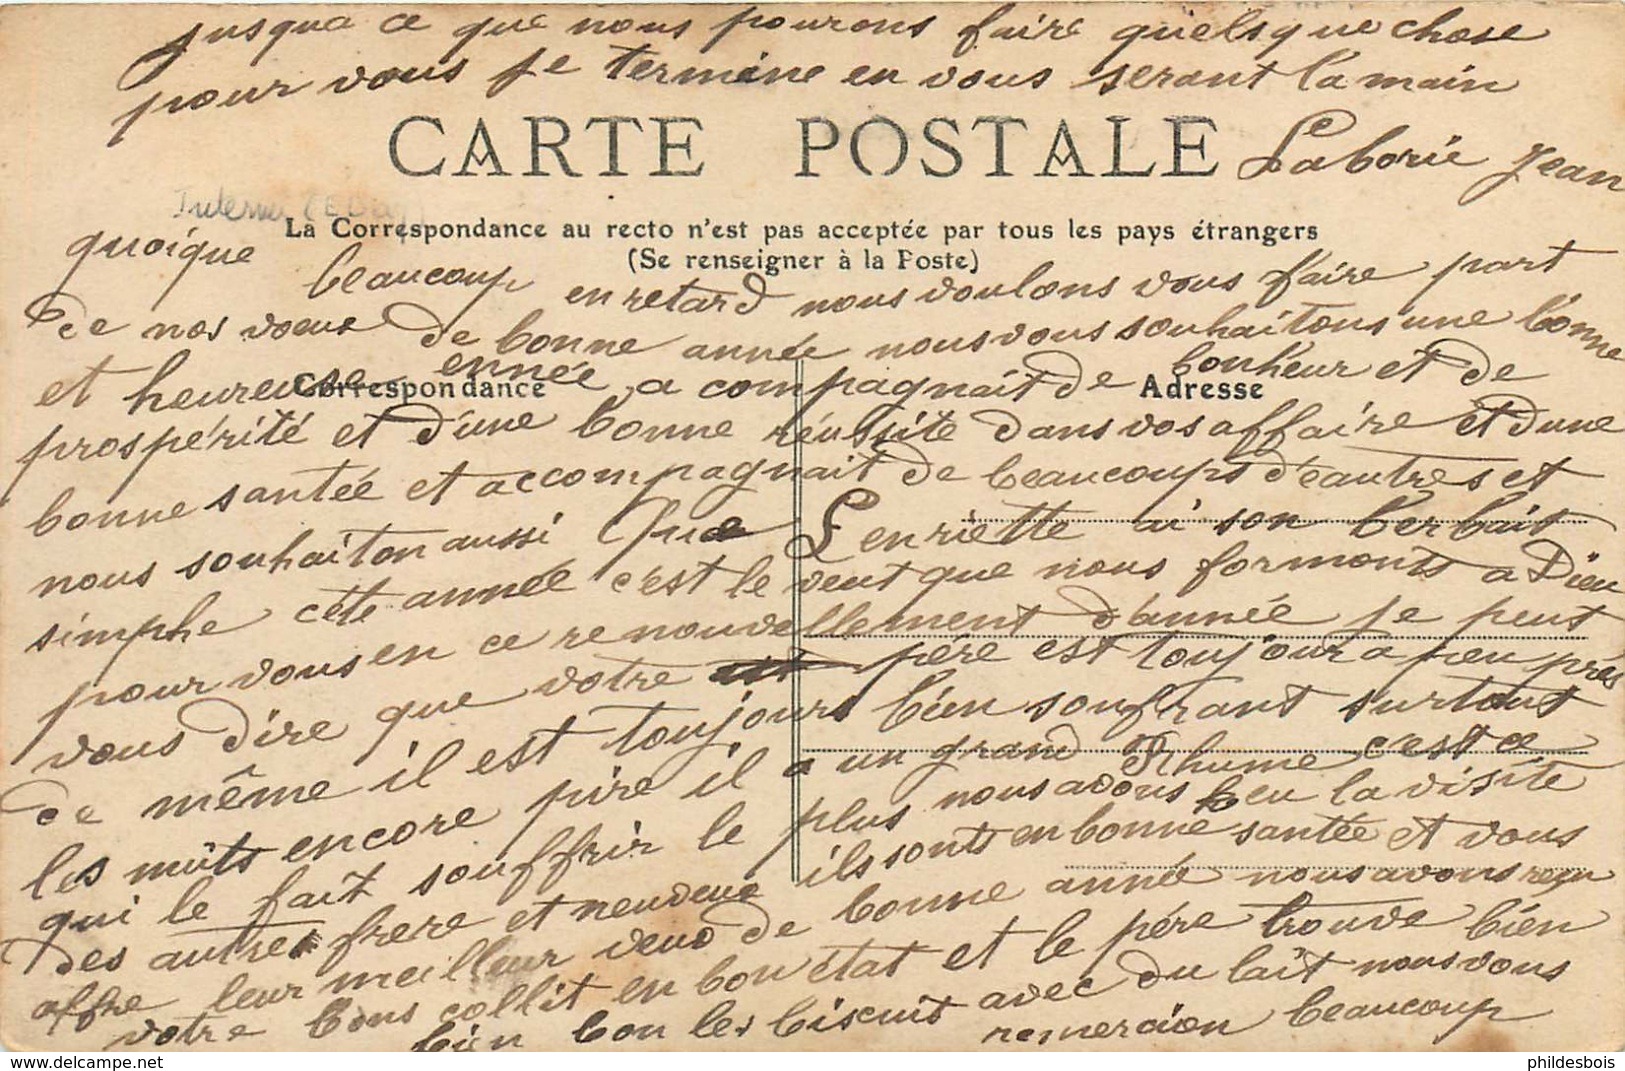 jusqua ce que nous pourons faire quelsque chose
pour vous je termine en vous serant la main
CARTE POSTALE
Laborie Jean
La Correspondance au recto n'est pas acceptée par tous les pays étrangers
(Se renseigner à la Poste)
quoique beaucoup en retard nous voulons vous faire part
de nos voeux de bonne année nous vous souhaitons une bonne
Correspondance
Adresse
et heureuse ennée a compagnait de bonheur et de
prospérité et d'une bonne réussite dans vos affaire et d'une
bonne santée et accompagnait de beaucoups d'eautres et
nous souhaiton aussi Que Lenriette ai son
simphe céte année c'est le veut que nous formonts a Dieu
pour vous en ce renouvellement d'année je peut
vous dire que votre père est toujour a peu près
de même il est toujours bien souffrant surtout
les nuits encore pire il a un grand Rhume c'est ce
qui le fait souffrir le plus nous avons eu la visite
des autres frere et neuveux ils sonts en bonne santée et vous
offre leur meilleur veux de bonne année nous avons reçu
votre bons collit en bon état et le père trouve bien
bien bon les biscuit avec du lait nous vous
remercion beaucoup
phildesbois